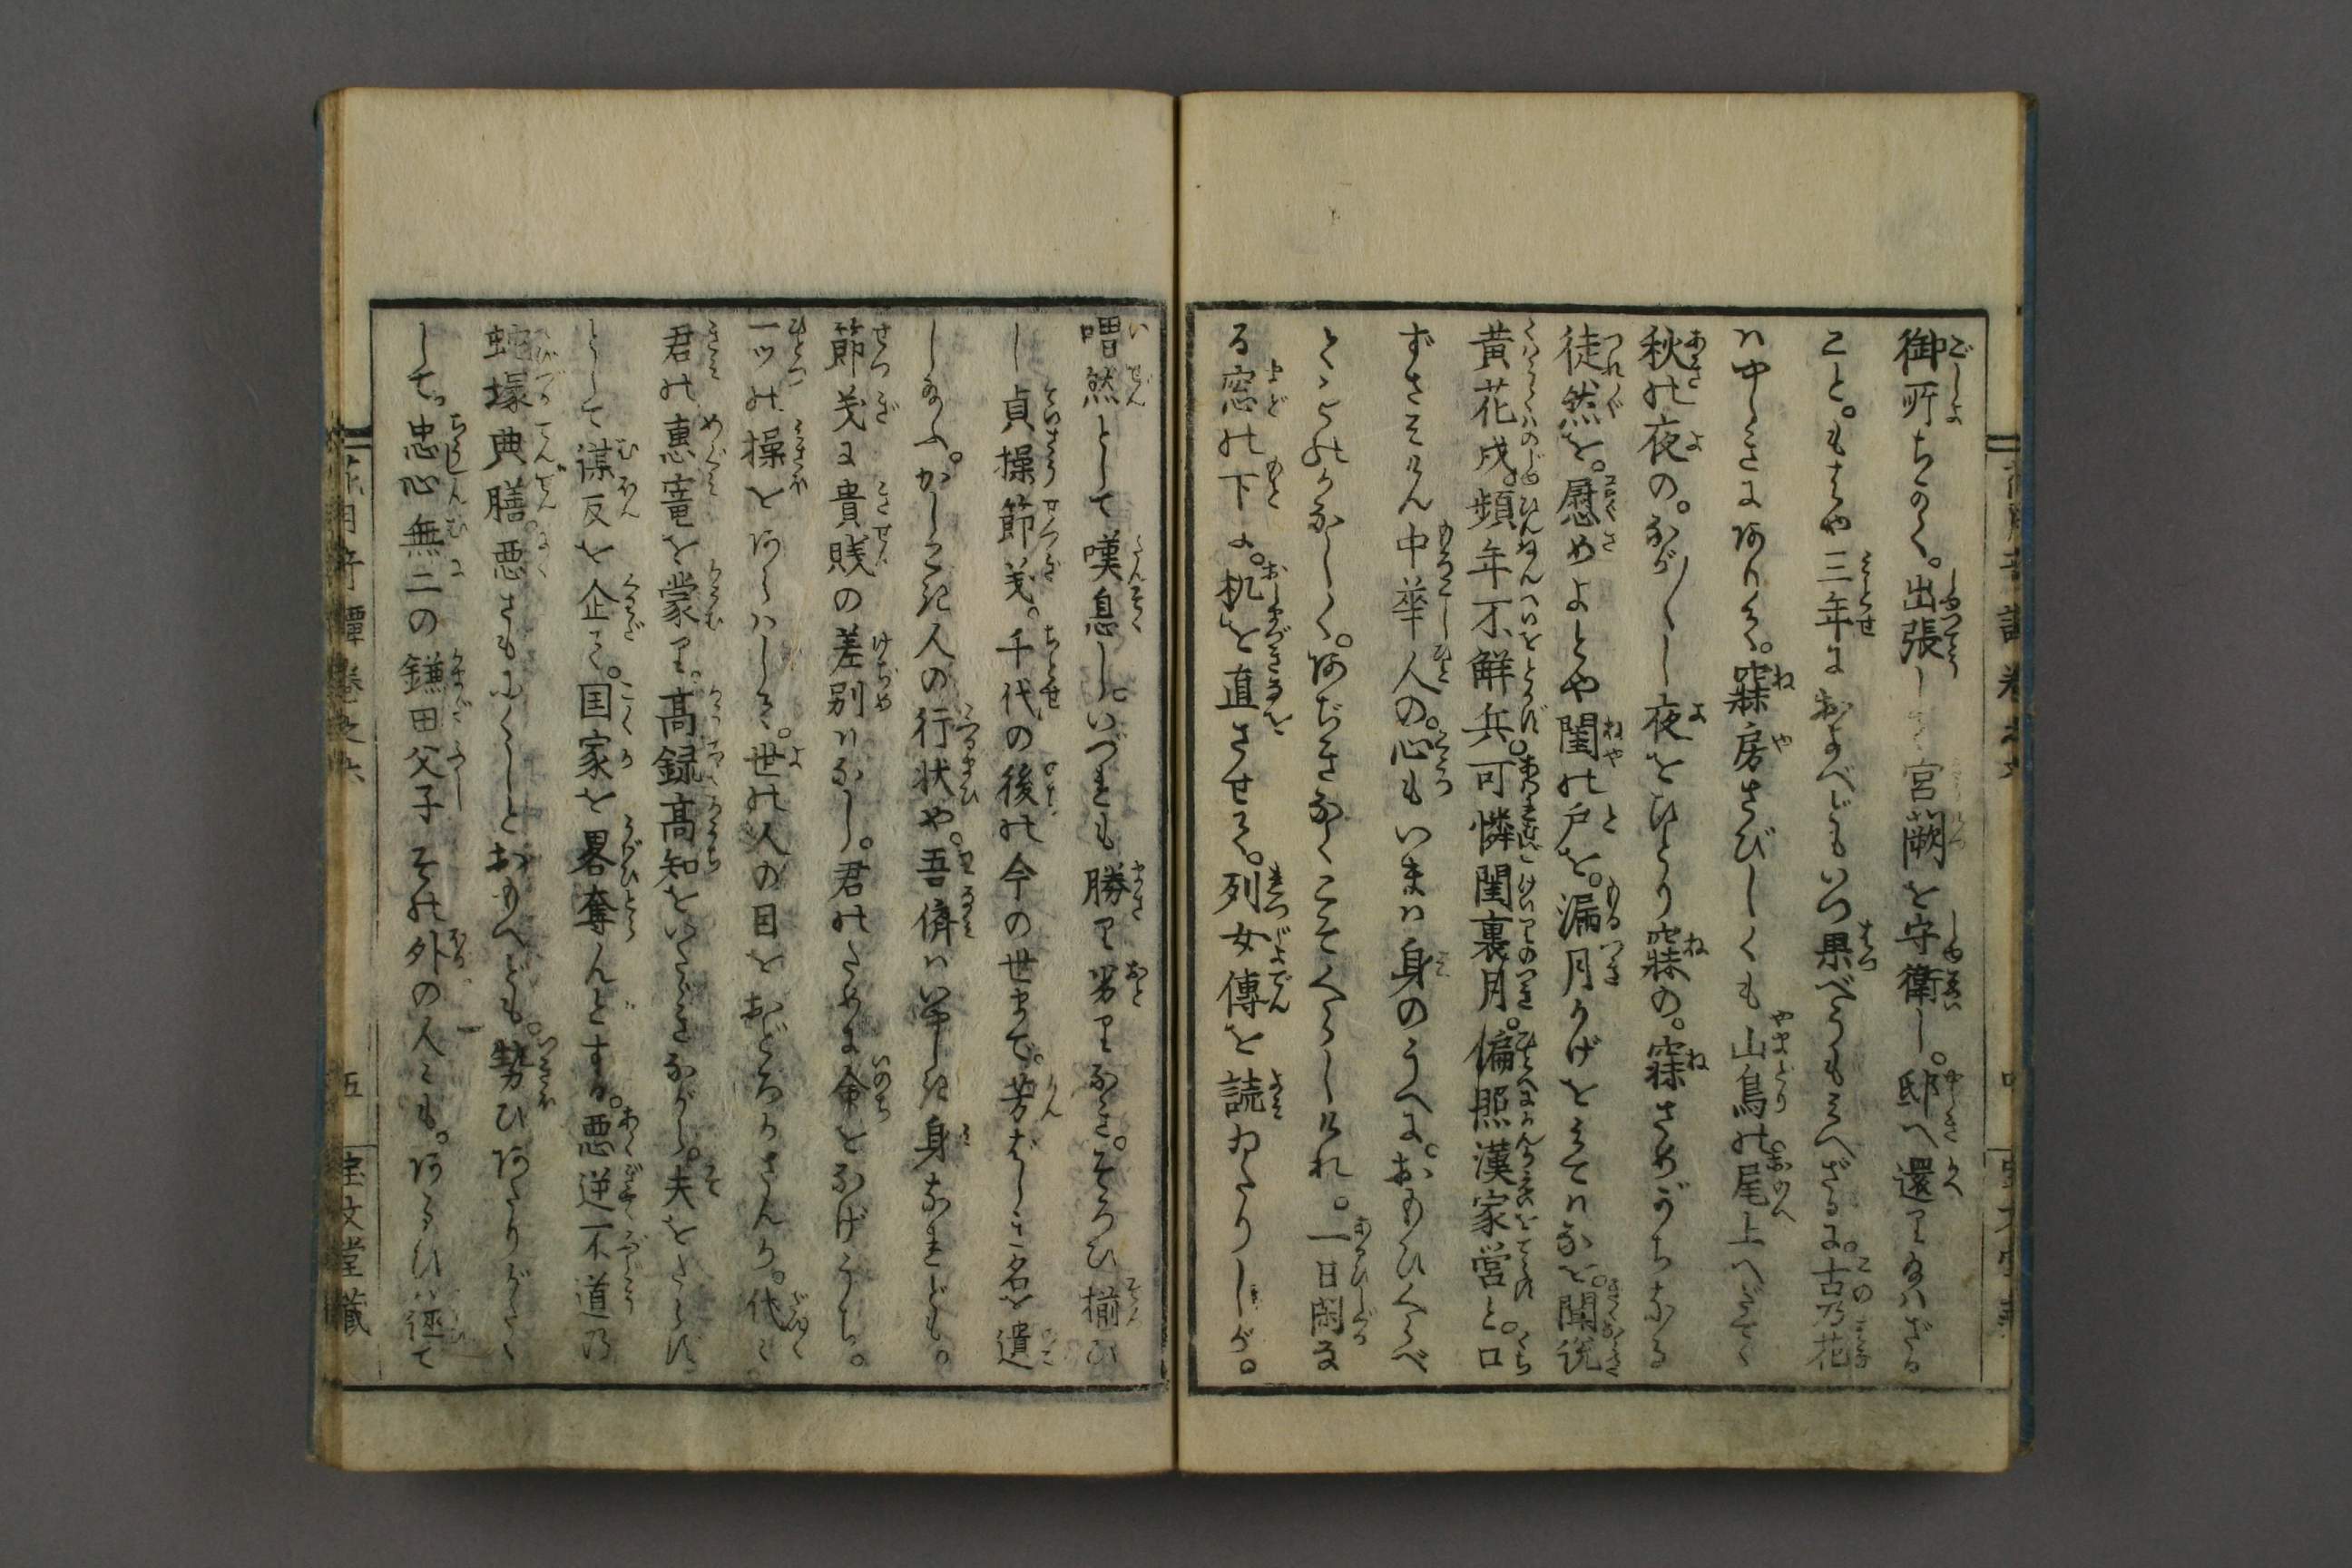 御所ちかく。出張して宮闕を守衛し。邸へ還り給はざる
こと。もはや三年におよべどもいつ果べうもみへざるに。古乃花
ハ中しさにありく。寐房さびしくも山鳥の尾上へだてゝ
秋の夜の。ながし夜をひとり寐の。寐さめがちなる
徒然を。慰めよとや閨の戸を。漏月かげをみてハなを。聞説
黄花戍。頻年不解兵可憐閨裏月。偏照漢家営と。口
ずさみけん中華人の。心もいまハ身のうへに。おもひくらべ
とゞのかなしく。あぢきなくこそくらしけれ。一日閑な
る窓の下に。机を直させて。列女傳を読ゐたりしが。
喟然として嘆息し。いづれも勝り劣りなき。そろひ揃ひ
し貞操節義。千代の後の今の世まで。芳ばしき名を遺
し給ふ。かしこき人の行状や。吾儕ハいやしき身なれども。
節義に貴賎の差別ハなし。君のために命をなげうち。
一ツの操をあらハして。世の人の目をおどろかさんか。代々
君の恵竜を蒙り。高録高知をいたゞきながら。夫をたらず
として謀反を企て。国家を畧奪んどする。悪逆不道乃
蛇塚典膳。悪さもにくしとおもへども。勢ひあたりがたく
して。忠心無二の鎌田父子その外の人々も。あるひハ
奇譚巻之六
五
宝文堂蔵